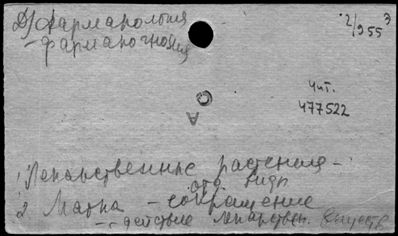 Д) Фармакология
- фармакогнозия
2/955 3
Чит.
477522
1 Лекарственные растения -
его виды
2 Матка - сокращение
- действие лекарствен. веществ